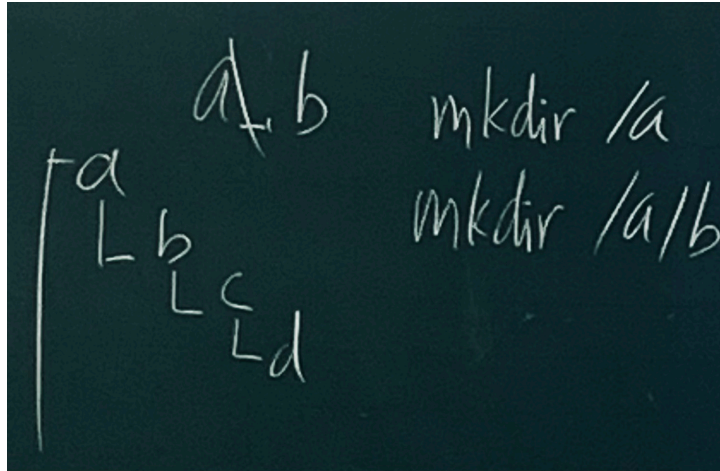 a\ b
mkdir /a
mkdir /a/b
a
b
c
d